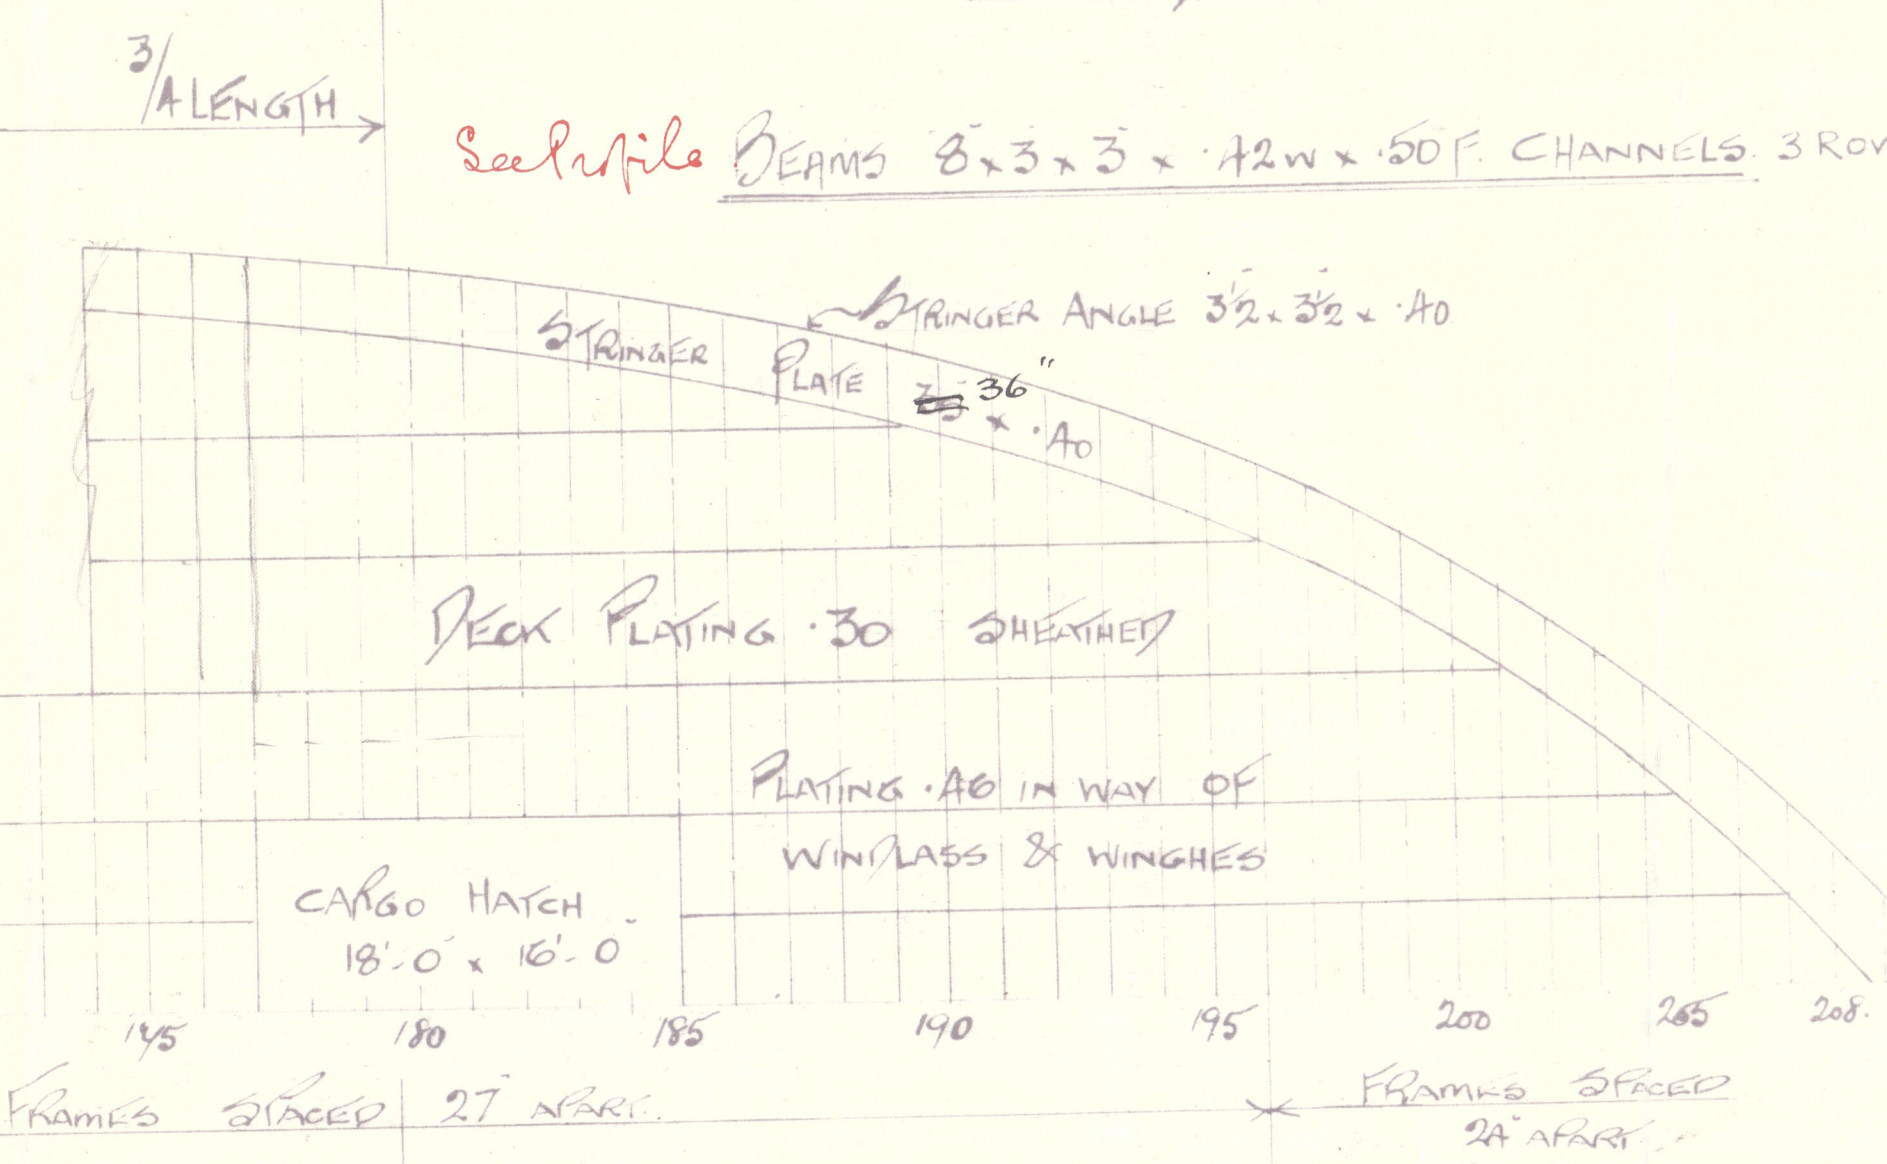 3/4 LENGTH
See Profile BEAMS 8" x 3" x 3" x .42W x .50F. CHANNELS. 3 ROW
STRINGER ANGLE 3½" x 3½" x .40
STRINGER PLATE 36" x .40
DECK PLATING .30 SHEATHED
PLATING .46 IN WAY OF
WINDLASS & WINCHES
CARGO HATCH
18'-0" x 16'-0"
175 180 185 190 195 200 205 208.
FRAMES SPACED 27" APART.
FRAMES SPACED
24" APART.